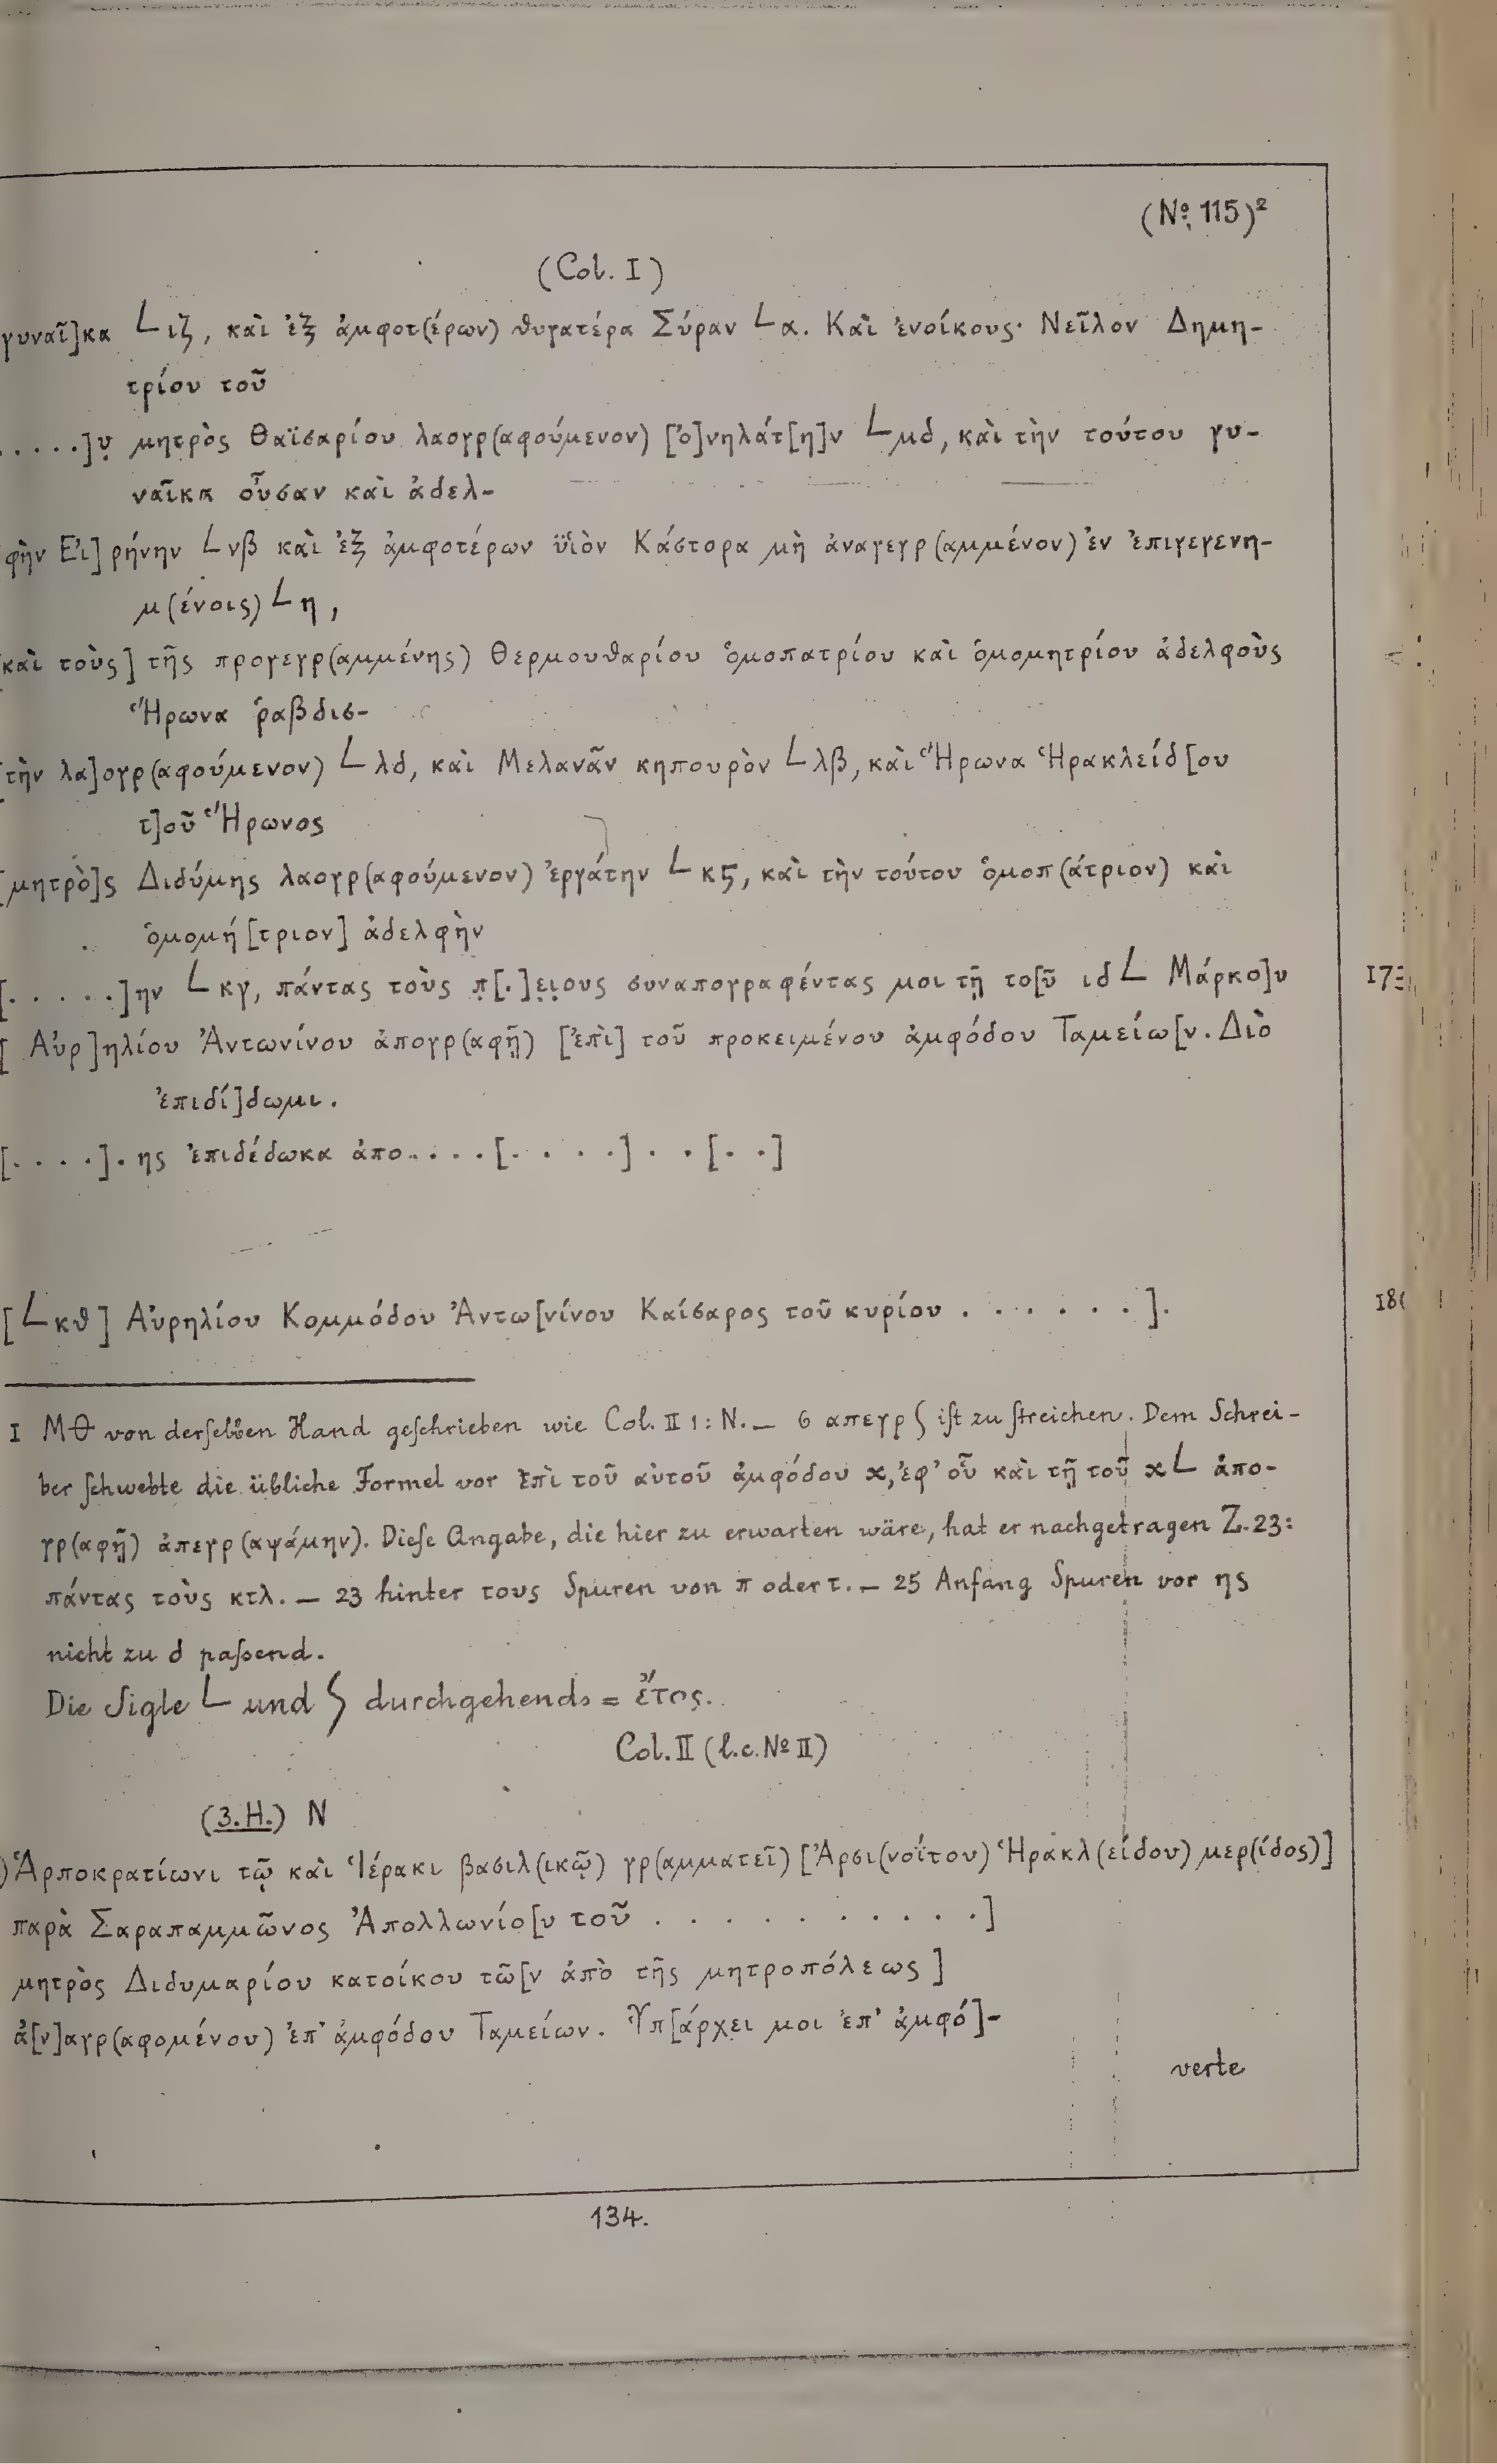 (No. 115)²
(Col. I)
γυναῖ]κα L ιζ, καὶ ἐξ ἀμφοτ(έρων) θυγατέρα Σύραν L α. Καὶ ἐνοίκους· Νεῖλον Δημη-
τρίου τοῦ
. . . . .]υ̣ μητρὸς Θαϊσαρίου λαογρ(αφούμενον) [ὀ]νηλάτ[η]ν L μδ, καὶ τὴν τούτου γυ-
ναῖκα οὖσαν καὶ ἀδελ-
φὴν Εἰ]ρήνην L νβ καὶ ἐξ ἀμφοτέρων ϋἱὸν Κάστορα μὴ ἀναγεγρ(αμμένον) ἐν ἐπιγεγενη-
μ(ένοις) L η,
καὶ τοὺς] τῆς προγεγρ(αμμένης) Θερμουθαρίου ὁμοπατρίου καὶ ὁμομητρίου ἀδελφοὺς
Ἥρωνα ῥαβδισ-
[τὴν λα]ογρ(αφούμενον) L λδ, καὶ Μελανᾶν κηπουρὸν L λβ, καὶ Ἥρωνα Ἡρακλείδ[ου
τ]οῦ Ἥρωνος
[μητρὸ]ς Διδύμης λαογρ(αφούμενον) ἐργάτην L κϛ, καὶ τὴν τούτου ὁμοπ(άτριον) καὶ
ὁμομή[τριον] ἀδελφὴν
[. . . . .]ην L κγ, πάντας τοὺς π̣[.]ε̣ι̣ους συναπογραφέντας μοι τῇ το[ῦ ιδ L Μάρκο]υ 173
[Αὐρ]ηλίου Ἀντωνίνου ἀπογρ(αφῇ) [ἐπὶ] τοῦ προκειμένου ἀμφόδου Ταμείω[ν. Διὸ
ἐπιδί]δωμι.
[. . . .]. ης ἐπιδέδωκα ἀπο. . . . [. . . .] . . [. .]
[L κθ] Αὐρηλίου Κομμόδου Ἀντω[νίνου Καίσαρος τοῦ κυρίου . . . . . .].
I ΜΘ von derselben Hand geschrieben wie Col. II 1: N. — 6 απεγρ ϛ ist zu streichen. Dem Schrei-
ber schwebte die übliche Formel vor ἐπὶ τοῦ αὐτοῦ ἀμφόδου x, ἐφ’ οὗ καὶ τῇ τοῦ x L ἀπο-
γρ(αφῇ) ἀπεγρ(αψάμην). Diese Angabe, die hier zu erwarten wäre, hat er nachgetragen Z. 23:
πάντας τοὺς κτλ. — 23 hinter τους Spuren von π oder τ. — 25 Anfang Spuren vor ης
nicht zu δ passend.
Die Sigle L und ϛ durchgehends = ἔτος.
Col. II (l.c. No II)
(3. H.) N
) Ἁρποκρατίωνι τῷ καὶ Ἱέρακι βασιλ(ικῷ) γρ(αμματεῖ) [Ἀρσι(νοίτου) Ἡρακλ(είδου) μερ(ίδος)]
παρὰ Σαραπαμμῶνος Ἀπολλωνίο[υ τοῦ . . . . . . . . . .]
μητρὸς Διδυμαρίου κατοίκου τῶ[ν ἀπὸ τῆς μητροπόλεως]
ἀ[ν]αγρ(αφομένου) ἐπ’ ἀμφόδου Ταμείων. Ὑπ[άρχει μοι ἐπ’ ἀμφό]-
verte
134.